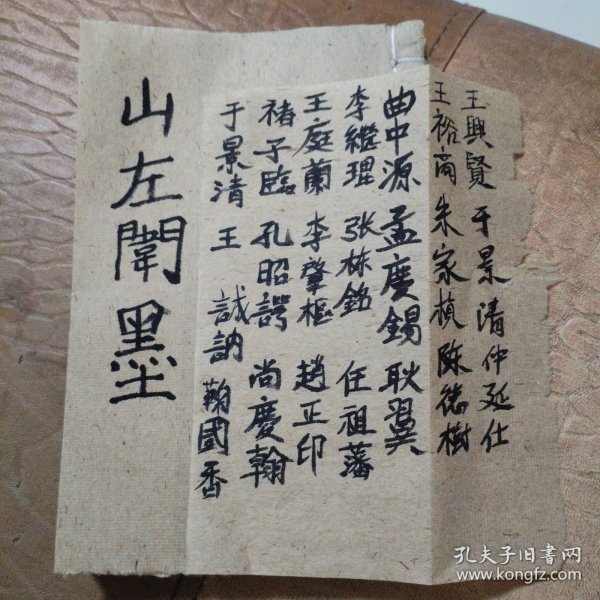 王興賢 于景清 仲延仕
王裕商 朱家楨 陈德樹
曲中源 孟慶錫 耿翼
李繼琨 张林銘 任祖藩
王庭蘭 李肇樞 趙正印
褚子臨 孔昭諤 尚慶翰
于景清 王誠訥 鞠國香
山左闈墨
孔夫子旧书网
www.kongfz.com